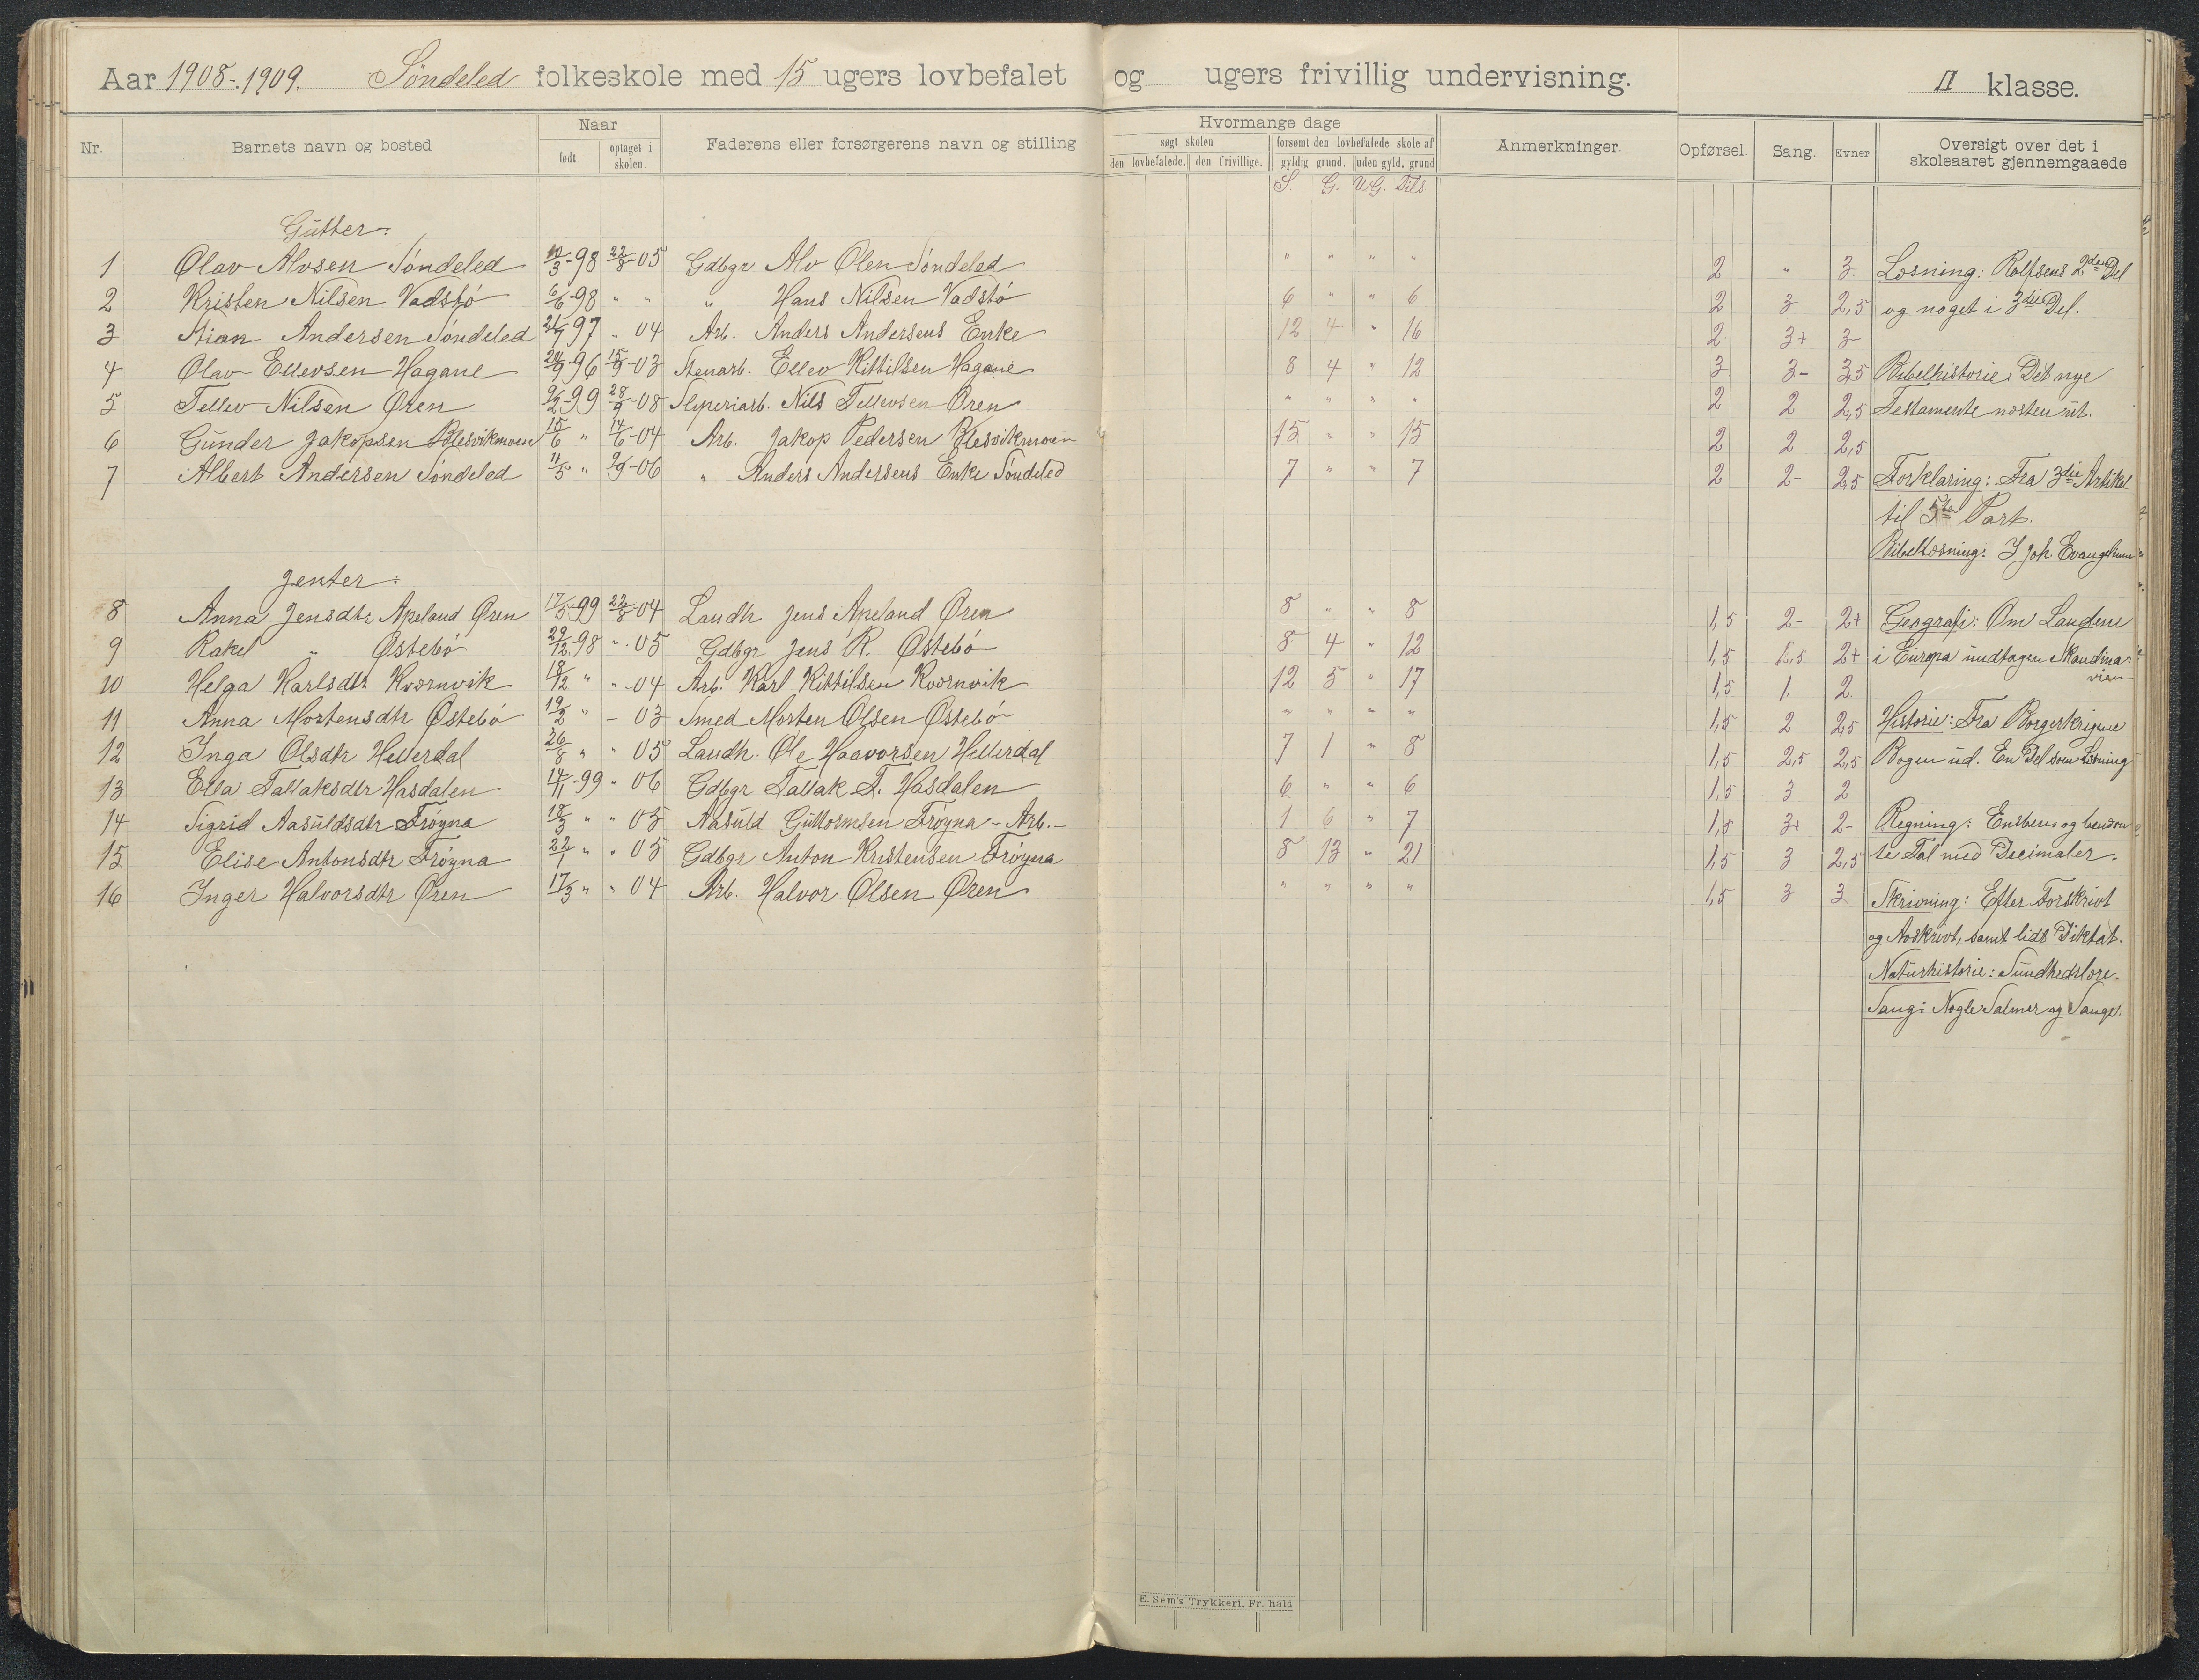 Aar 1908-1909. Söndeled folkeskole med 15 ugers lovbefalet og ugers frivillig undervisning. II klasse.
Nr. Barnets navn og bosted Naar født optaget i skolen. Faderens eller forsørgerens navn og stilling Hvormange dage søgt skolen den lovbefalede. den frivillige. forsømt den lovbefalede skole af gyldig grund. uden gyld. grund Anmerkninger. Opførsel. Sang. Evner Oversigt over det i skoleaaret gjennemgaaede
S. G. UG. Dils
Gutter:
1 Olav Alvsen Söndeled 3-98 22/8-05 Gdbgr Alv Olsen Söndeled " " " " 2 " 3 Læsning: Rolfsens 2den Del
2 Kristen Nilsen Vadstö 6/6-98 " " " Hans Nilsen Vadstö 6 " " 6 2 3 2,5 og noget i 3die Del.
3 Andersen Söndeled 97 " 04 Arb. Anders Andersens Enke 12 4 " 16 2 3+ 3
4 Olav Ellevsen Hagane 24/9 96 15/9-03 Stenarb. Ellev Kittilsen Hagane 8 4 " 12 3 3- 3,5 Bibelhistorie: Det nye
5 Tellev Nilsen Øren 9/2-99 28/9-08 Sliperiarb. Nils Tellevsen Øren " " " " 2 2 2,5 Testamente næsten ut.
6 Gunder Jakopsen Blesvikmoen 15/6 " 14/6-04 Arb. Jakop Pedersen Blesvikmoen 15 " " 15 2 2 2,5
7 Albert Andersen Söndeled 11/5 " 9/9-06 " Anders Andersens Enke Söndeled 7 " " 7 2 2- 2,5 Forklaring: Fra 3die Artikel
til 5te Part.
Bibellæsning: I Joh. Evangelium
Jenter:
8 Anna Jensdtr Apeland Øren 17/5-99 22/8-04 Landh. Jens Apeland Øren 8 " " 8 1,5 2- 2+ Geografi: Om Landene
9 Rakel " Östebö 29/12-98 " 05 Gdbgr Jens R. Östebö 8 4 " 12 1,5 1,5 2+ i Europa undtagen Skandina-
vien
10 Helga Karlsdtr Kværnvik 18/12 " " -04 Arb. Karl Kittilsen Kværnvik 12 5 " 17 1,5 1 2
11 Anna Mortensdtr Östebö 19/2 " - 03 Smed Morten Olsen Östebö " " " " 1,5 2 2,5 Historie: Fra Borgerkrigene
12 Inga Olsdtr Hellerdal 26/8 " " 05 Landh. Ole Haavorsen Hellerdal 7 1 " 8 1,5 2,5 2,5 Bogen ud. En Del som Læsning
13 Ella Tallaksdtr Hasdalen 14/1-99 " 06 Gdbgr Tallak T. Hasdalen 6 " " 6 1,5 3 2
14 Sigrid Aasuldsdtr Fröyna 18/3 " " 05 Aasuld Guttormsen Fröyna - Arb.- 1 6 " 7 1,5 3+ 2- Regning: Ensbens og benævn
15 Elise Antonsdtr Fröyna 22/1 " " 05 Gdbgr Anton Kristensen Fröyna 8 13 " 21 1,5 3 2,5 te Tal med Decimaler.
16 Inger Halvorsdtr Øren 17/3 " " 04 Arb. Halvor Olsen Øren " " " " 1,5 3 3 Skrivning: Efter Forskrivt
og Avskrivt, samt lidt Diktat.
Naturhistorie: Sundhedslære.
Sang: Nogle Salmer og Sange.
E. Sem's Trykkeri, Fr. hald